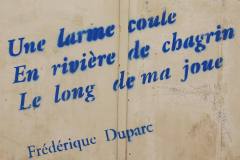 Une larme coule
En rivière de chagrin
Le long de ma joue
Frédérique Duparc